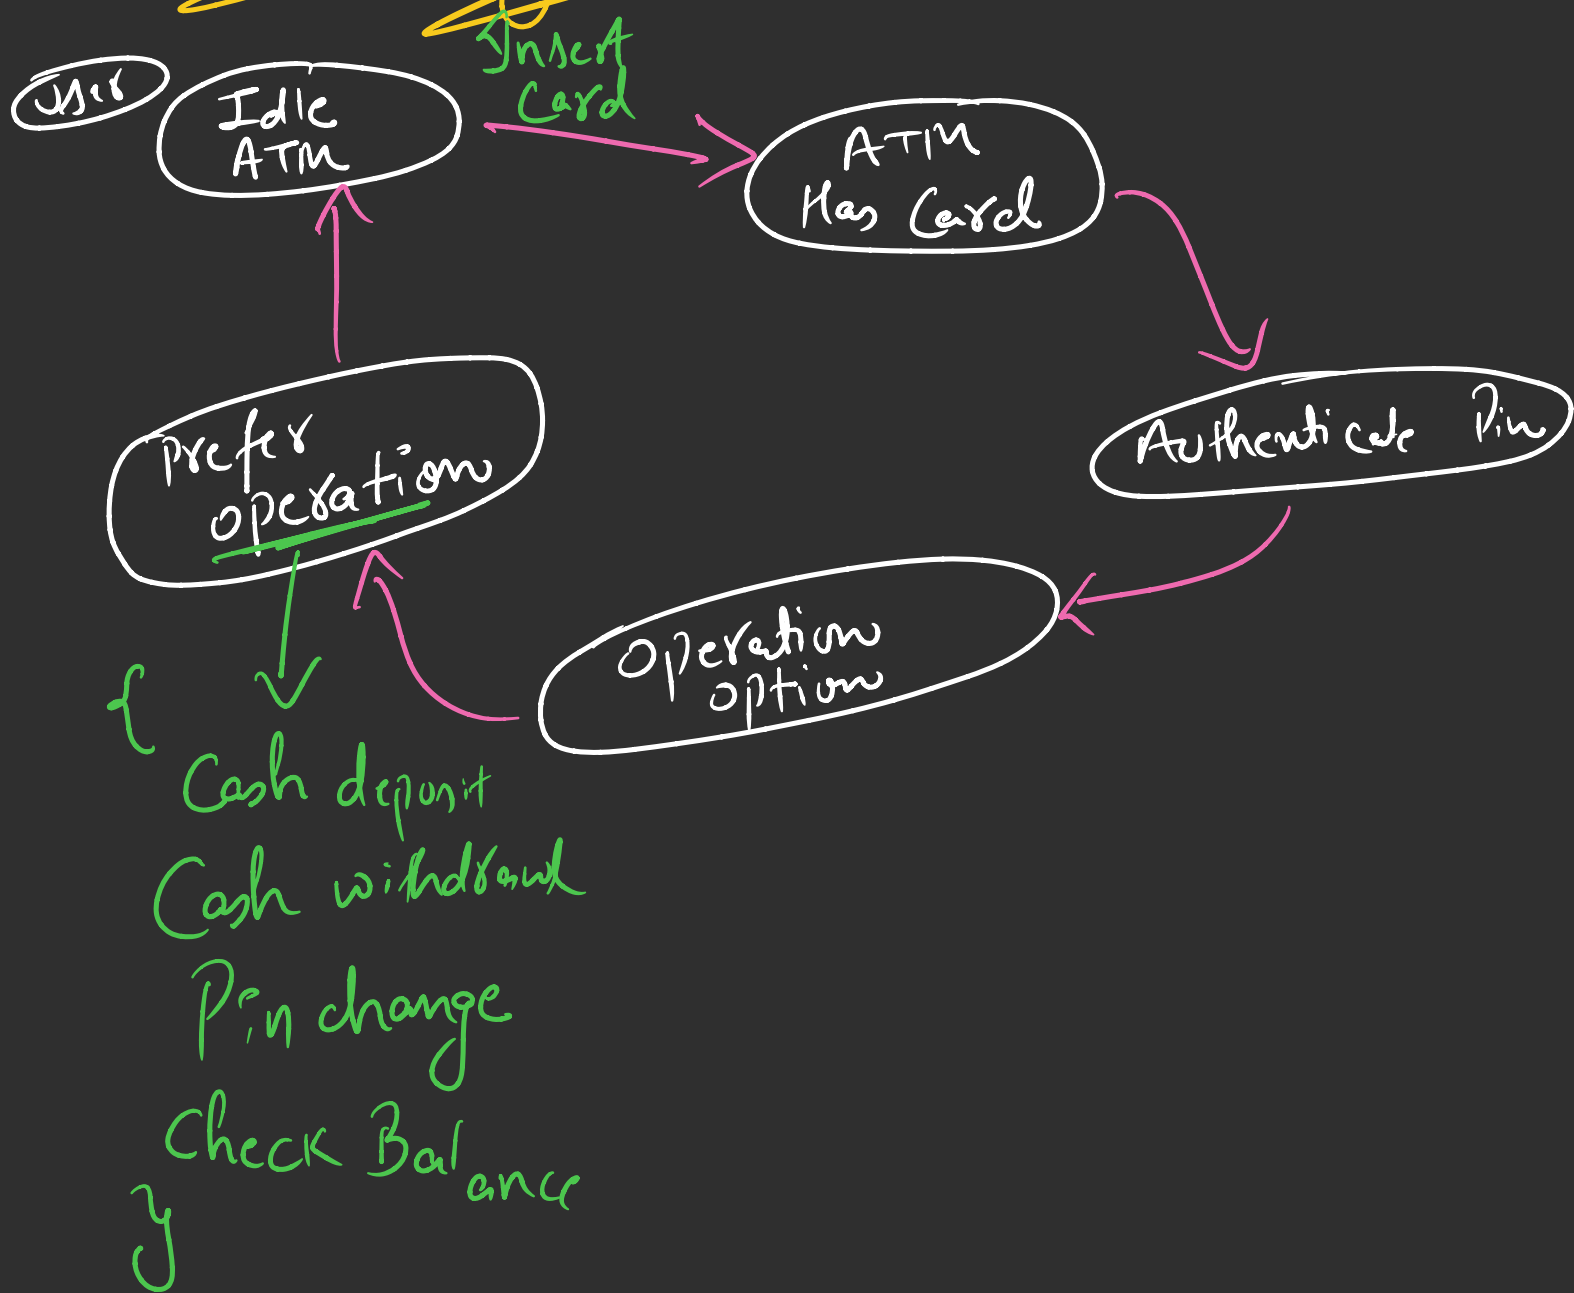 User
Idle
ATM
Insert
Card
ATM
Has Card
Authenticate Pin
Operation
option
Prefer
operation
{
Cash deposit
Cash withdrawl
Pin change
Check Balance
}